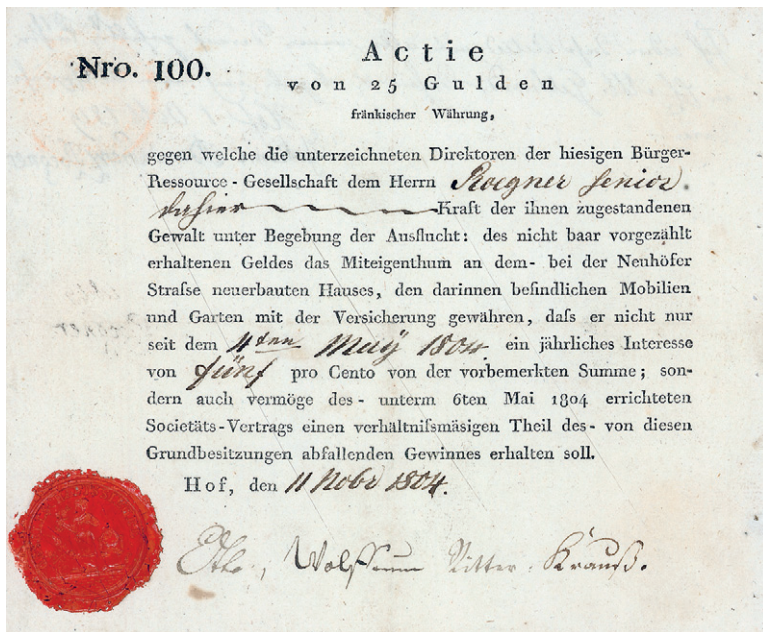 Nro. 100.
Actie
von 25 Gulden
fränkischer Währung,
gegen welche die unterzeichneten Direktoren der hiesigen Bürger-
Ressource - Gesellschaft dem Herrn Roegner senior.
dahier Kraft der ihnen zugestandenen
Gewalt unter Begebung der Ausflucht: des nicht baar vorgezählt
erhaltenen Geldes das Miteigenthum an dem- bei der Neuhöfer
Strafse neuerbauten Hauses, den darinnen befindlichen Mobilien
und Garten mit der Versicherung gewähren, dafs er nicht nur
seit dem 4ten May 1804. ein jährliches Interesse
von fünf pro Cento von der vorbemerkten Summe; son-
dern auch vermöge des- unterm 6ten Mai 1804 errichteten
Societäts-Vertrags einen verhältnifsmäsigen Theil des- von diesen
Grundbesitzungen abfallenden Gewinnes erhalten soll.
Hof, den 11 Nobr 1804.
Ritter. Krauß.